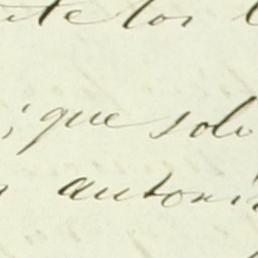 ute los
; que solo
autori